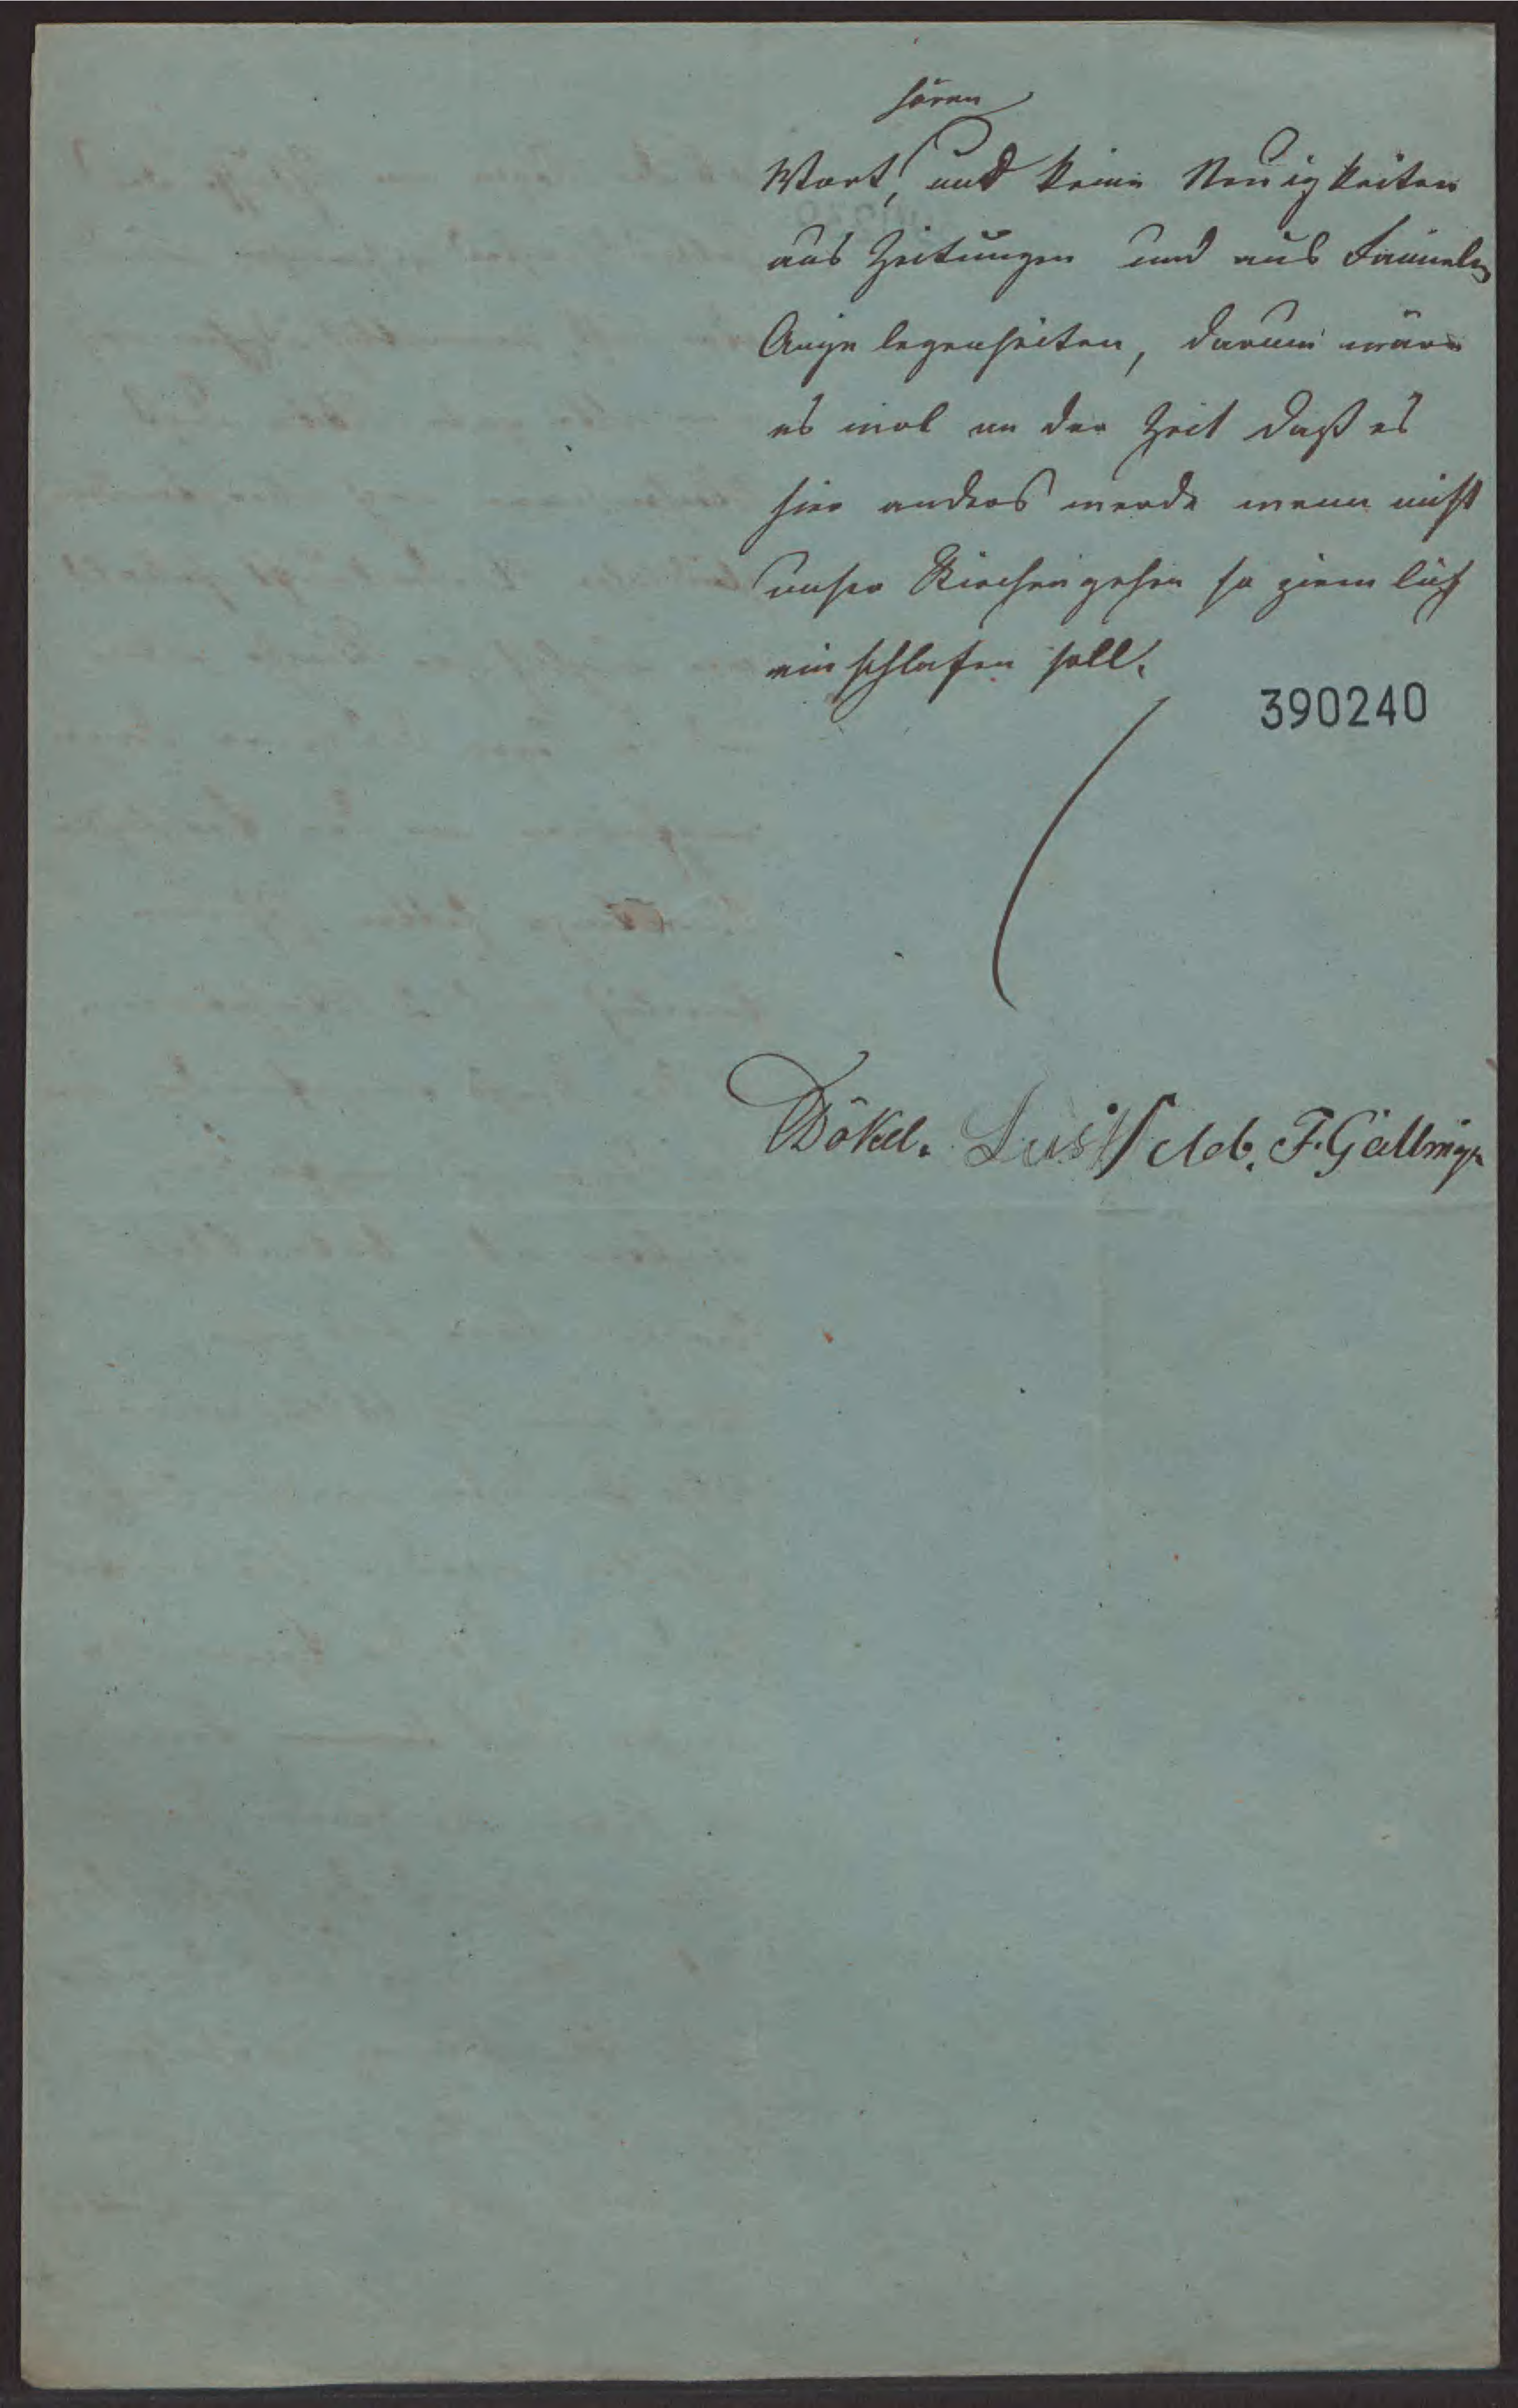 hören
Wort, und keine Neuigkeiten
aus Zeitungen und aus Familen
Angelegenheiten, darum wäre
es wol an der Zeit daß es
hier anders werde wenn nicht
unser Kirchengehen so ziemlich
einschlafen soll.
390240
Dökel. Lust F.